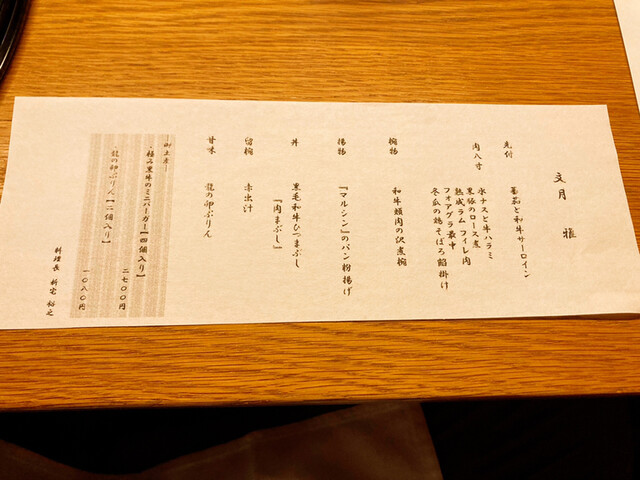 文月 雅
先付 蕃茄と和牛サーロイン
肉八寸 水ナスと牛ハラミ
黒豚のロース煮
熟成ラムフィレ肉
フォアグラ最中
冬瓜の鶏そぼろ餡掛け
椀物 和牛頬肉の沢煮椀
揚物 『マルシン』のパン粉揚げ
丼 黒毛和牛ひつまぶし
『肉まぶし』
留椀 赤出汁
甘味 龍の卵ぷりん
―御土産―
・極み黒牛のミニバーガー【四個入り】
二七00円
・龍の卵ぷりん【二個入り】
一0八0円
料理長 新宅 裕之